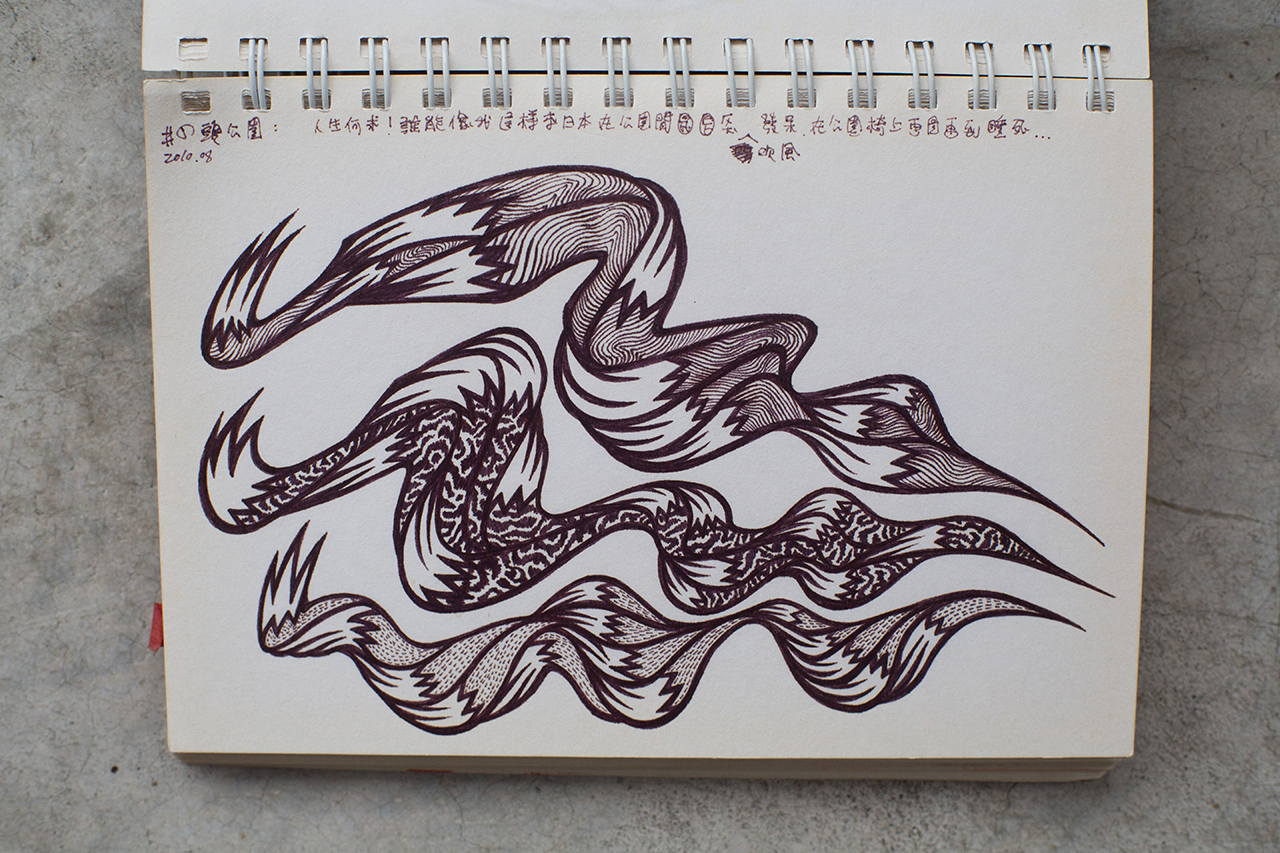 井の頭公園： 人生何求！誰能像我這樣來日本在公園閒 發呆、在公園椅上畫圖畫到睡死...
2010.08 吹風